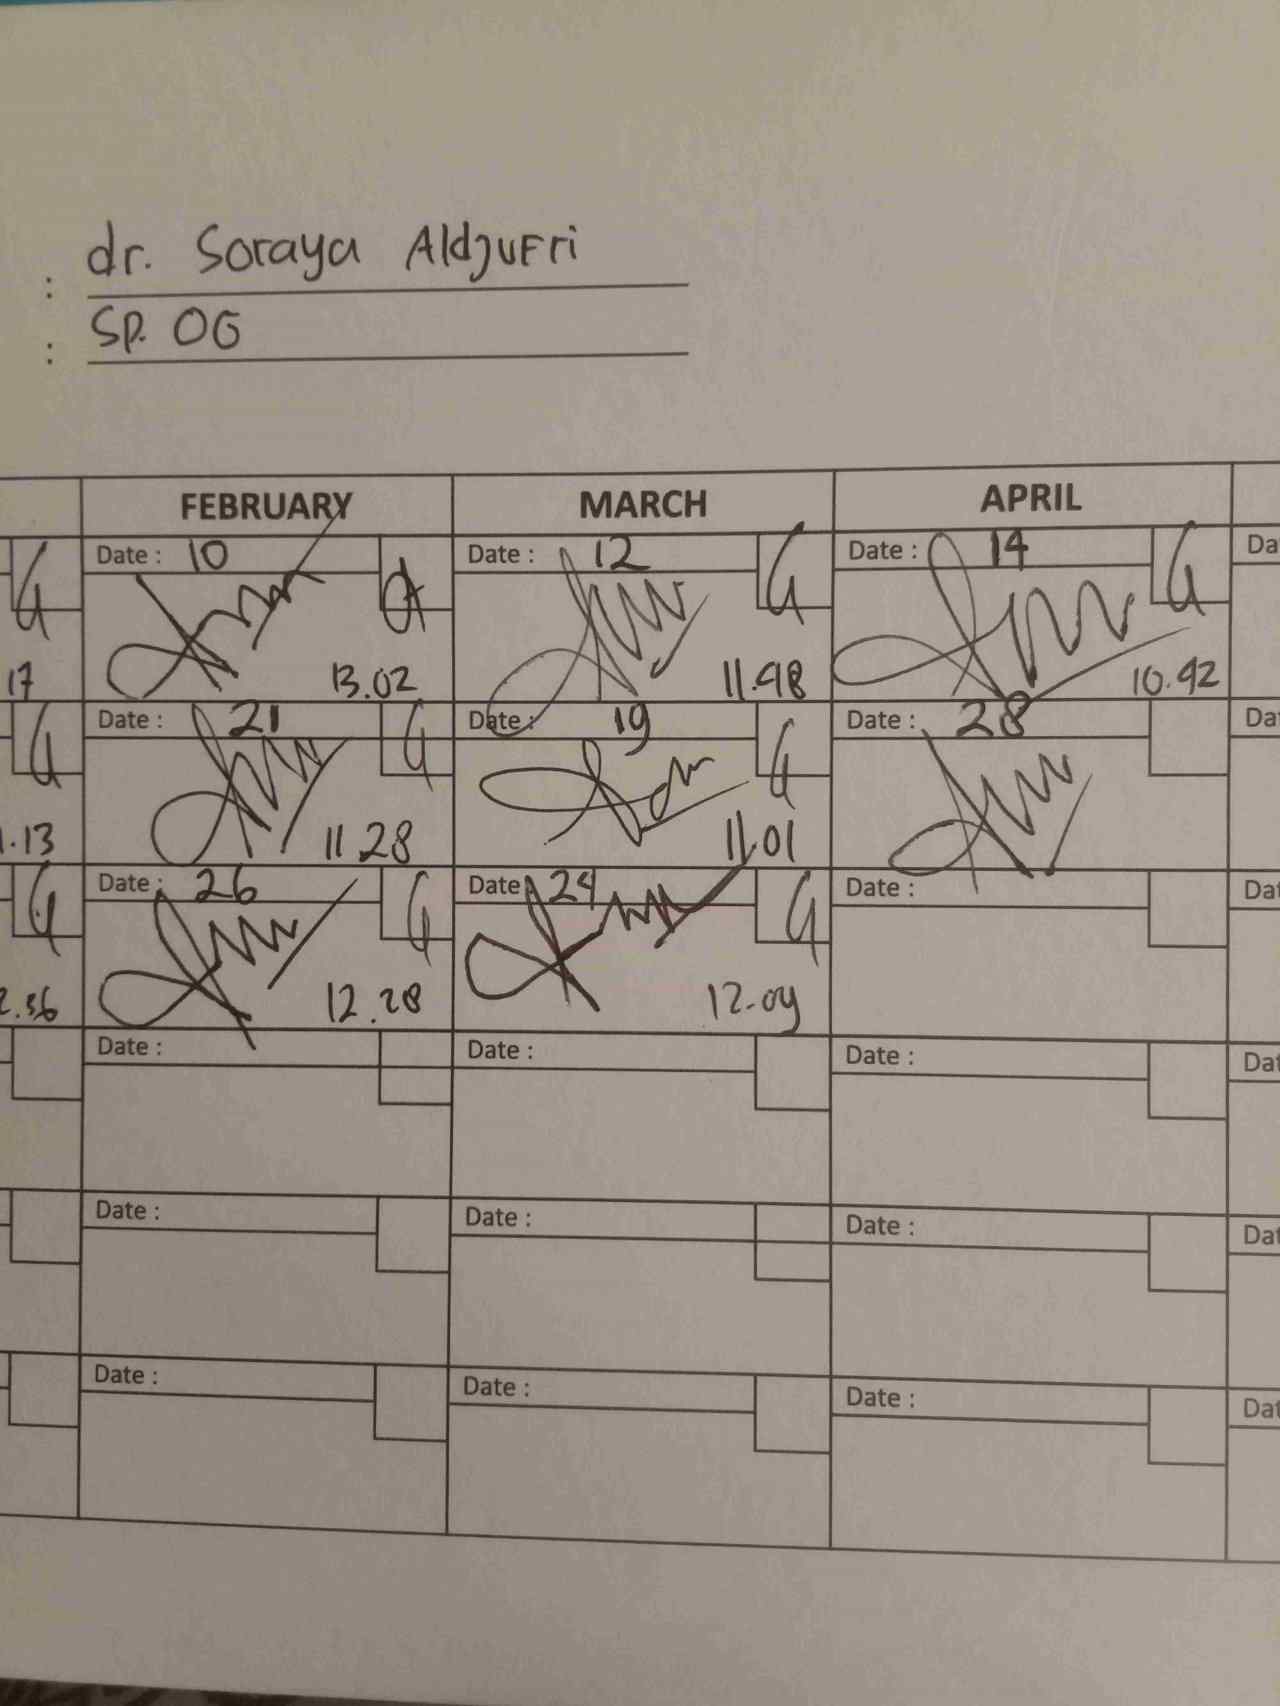 : dr. Soraya Aldjufri
: Sp. OG
FEBRUARY MARCH APRIL
Date : 10 Date : 12 Date : 14 Da
17 13.02 11.48 10.42
Date : 21 Date : 19 Date : 28 Da
.13 11.28 11.01
Date : 26 Date : 24 Date : Dat
2.56 12.28 12.09
Date : Date : Date : Dat
Date : Date : Date : Dat
Date : Date : Date : Dat